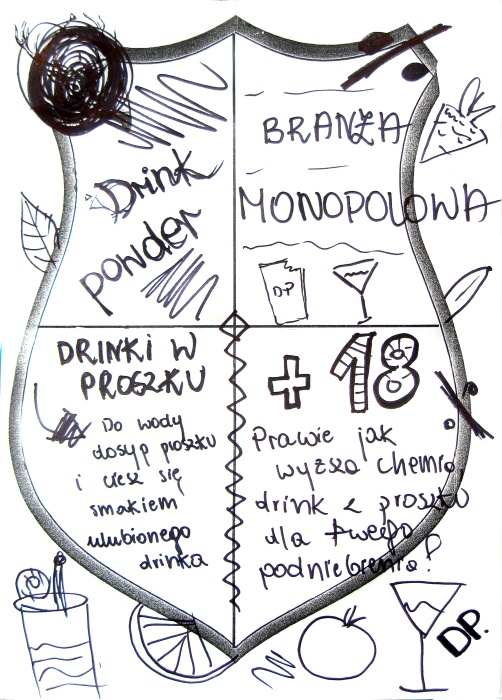 Drink
powder
BRANŻA
MONOPOLOWA
DP
DRINKI W
PROSZKU
Do wody
dosyp proszku
i ciesz się
smakiem
ulubionego
drinka
+18
Prawie jak
wyższa chemia,
drink z proszku
dla twego
podniebienia!
DP.